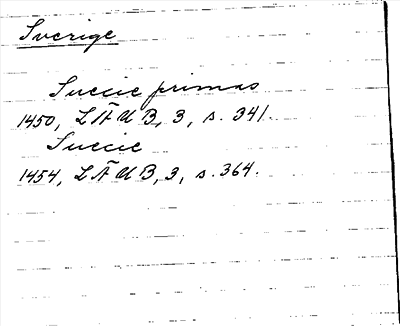 Sverige
Suecie primas
1450, LÄUB, 3, s. 341.
Suecie
1454, LÄUB, 3, s. 364.